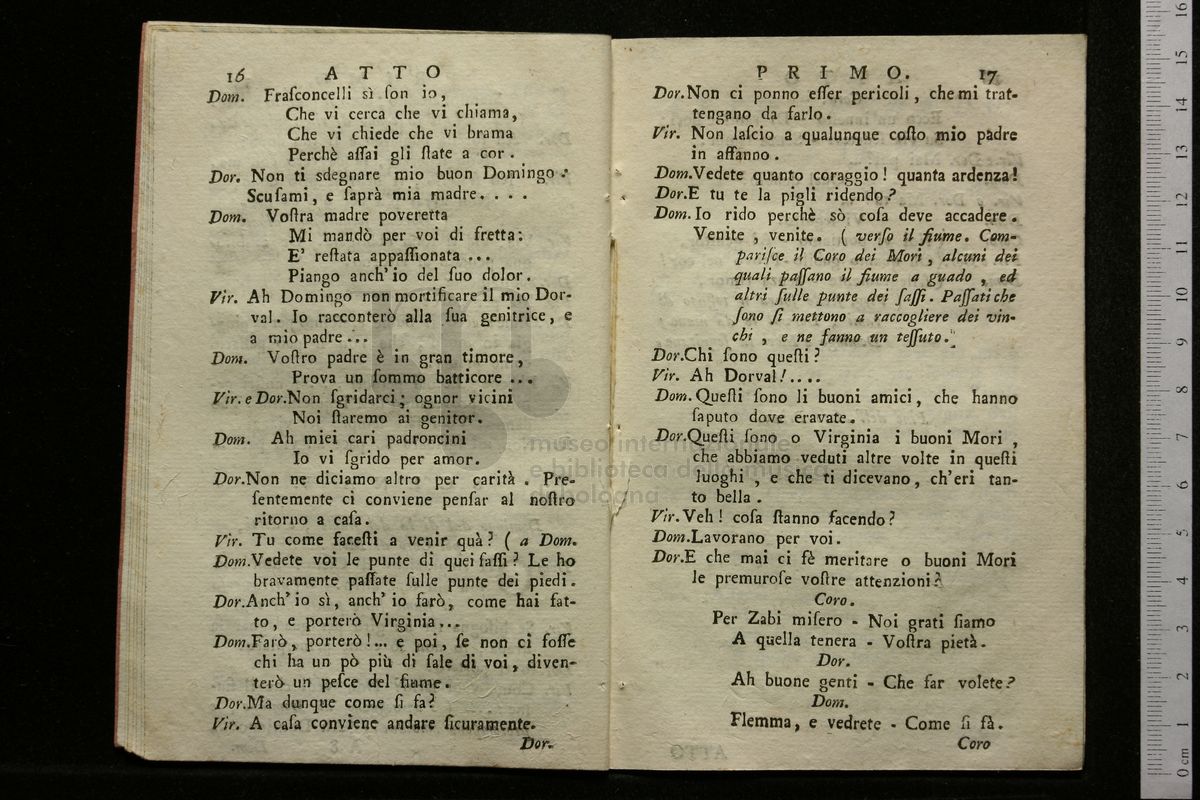 16 ATTO
Dom. Fraſconcelli sì ſon io,
Che vi cerca che vi chiama,
Che vi chiede che vi brama
Perchè aſſai gli ſtate a cor.
Dor. Non ti sdegnare mio buon Domingo:
Scuſami, e ſaprà mia madre. . . .
Dom. Voſtra madre poveretta
Mi mandò per voi di fretta:
E' reſtata appaſſionata ...
Piango anch' io del ſuo dolor.
Vir. Ah Domingo non mortificare il mio Dor-
val. Io racconterò alla ſua genitrice, e
a mio padre ...
Dom. Voſtro padre è in gran timore,
Prova un ſommo batticore ...
Vir. e Dor. Non ſgridarci; ognor vicini
Noi ſtaremo ai genitor.
Dom. Ah miei cari padroncini
Io vi ſgrido per amor.
Dor. Non ne diciamo altro per carità. Pre-
ſentemente ci conviene penſar al noſtro
ritorno a caſa.
Vir. Tu come faceſti a venir quà? ( a Dom.
Dom. Vedete voi le punte di quei ſaſſi? Le ho
bravamente paſſate ſulle punte dei piedi.
Dor. Anch' io sì, anch' io farò, come hai fat-
to, e porterò Virginia...
Dom. Farò, porterò!... e poi, ſe non ci foſſe
chi ha un pò più di ſale di voi, diven-
terò un peſce del fiume.
Dor. Ma dunque come ſi fa?
Vir. A caſa conviene andare ſicuramente.
Dor.
PRIMO. 17
Dor. Non ci ponno eſſer pericoli, che mi trat-
tengano da farlo.
Vir. Non laſcio a qualunque coſto mio padre
in affanno.
Dom. Vedete quanto coraggio! quanta ardenza!
Dor. E tu te la pigli ridendo?
Dom. Io rido perchè sò coſa deve accadere.
Venite, venite. ( verſo il fiume. Com-
pariſce il Coro dei Mori, alcuni dei
quali paſſano il fiume a guado, ed
altri ſulle punte dei ſaſſi. Paſſati che
ſono ſi mettono a raccogliere dei vin-
chi, e ne fanno un teſſuto.
Dor. Chi ſono queſti?
Vir. Ah Dorval!....
Dom. Queſti ſono li buoni amici, che hanno
ſaputo dove eravate.
Dor. Queſti ſono o Virginia i buoni Mori,
che abbiamo veduti altre volte in queſti
luoghi, e che ti dicevano, ch'eri tan-
to bella.
Vir. Veh! coſa ſtanno facendo?
Dom. Lavorano per voi.
Dor. E che mai ci fè meritare o buoni Mori
le premuroſe voſtre attenzioni?
Coro.
Per Zabi miſero - Noi grati ſiamo
A quella tenera - Voſtra pietà.
Dor.
Ah buone genti - Che far volete?
Dom.
Flemma, e vedrete - Come ſi fà.
Coro
museo internazionale
e biblioteca della musica
di bologna
0 cm 1 2 3 4 5 6 7 8 9 10 11 12 13 14 15 16